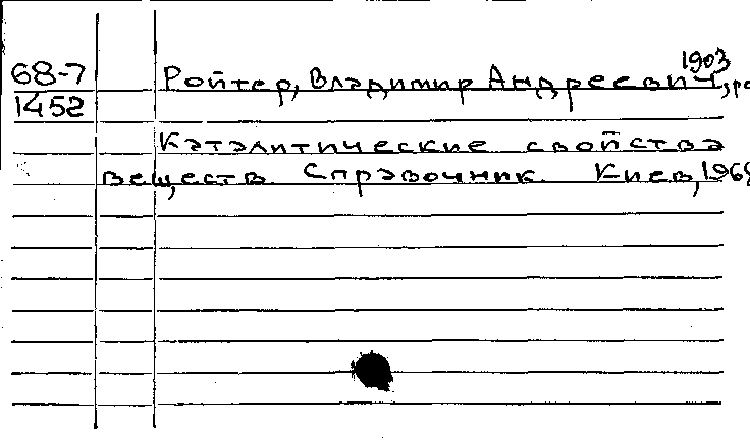 1903
68-7 Ройтер, Владимир Андреевич,
1452
Каталитические свойства
веществ. Справочник. Киев,